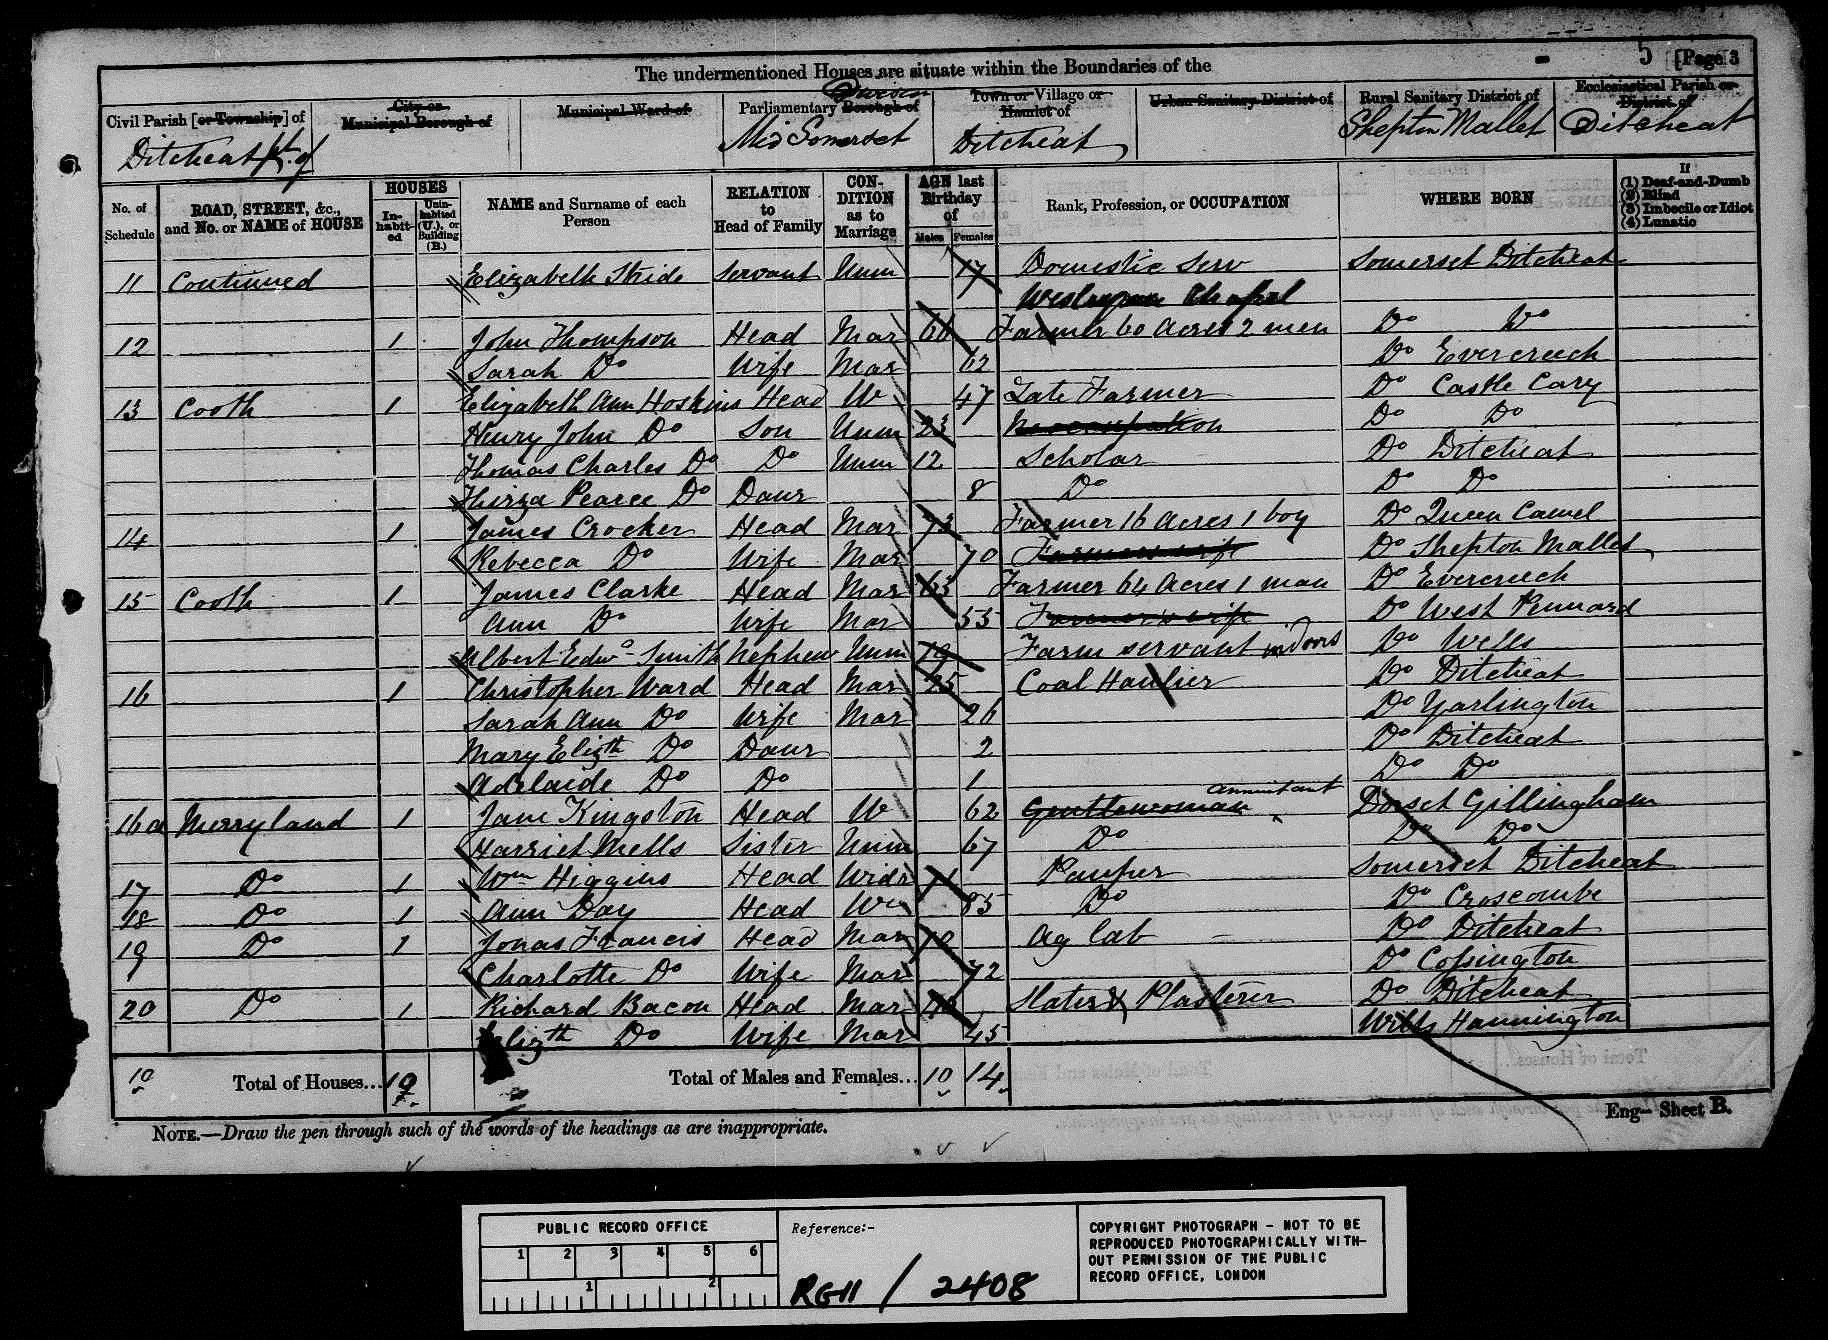 5 [Page 3
The undermentioned Houses are situate within the Boundaries of the
Civil Parish [or Township] of
City or Municipal Borough of
Municipal Ward of
Parliamentary Borough of
Town or Village or Hamlet of
Urban Sanitary District of
Rural Sanitary District of
Ecclesiastical Parish or District of
Ditcheat pt. of
Mid Somerset
Ditcheat
Shepton Mallet
Ditcheat
No. of Schedule
ROAD, STREET, &c., and No. or NAME of HOUSE
HOUSES
In-habit-ed
Unin-habited (U.), or Building (B.)
NAME and Surname of each Person
RELATION to Head of Family
CON-DITION as to Marriage
AGE last Birthday of
Males Females
Rank, Profession, or OCCUPATION
WHERE BORN
If
(1) Deaf-and-Dumb
(2) Blind
(3) Imbecile or Idiot
(4) Lunatic
11 Continued Elizabeth Stride Servant Unm 17 Domestic Serv Somerset Ditcheat
Wesleyan Chapel
12 1 John Thompson Head Mar 66 Farmer 60 Acres 2 men Do Do
Sarah Do Wife Mar 62 Do Evercreech
13 Cooth 1 Elizabeth Ann Hoskins Head W 47 Late Farmer Do Castle Cary
Henry John Do Son Unm 23 No occupation Do Do
Thomas Charles Do Do Unm 12 Scholar Do Ditcheat
Thirza Pearce Do Daur 8 Do Do Do
14 1 James Crocker Head Mar 73 Farmer 16 Acres 1 boy Do Queen Camel
Rebecca Do Wife Mar 70 Farmers wife Do Shepton Mallet
15 Cooth 1 James Clarke Head Mar 63 Farmer 64 Acres 1 man Do Evercreech
Ann Do Wife Mar 55 Farmer's wife Do West Pennard
Albert Edwd Smith Nephew Unm 19 Farm servant indoors Do Wells
16 1 Christopher Ward Head Mar 25 Coal Haulier Do Ditcheat
Sarah Ann Do Wife Mar 26 Do Yarlington
Mary Elizth Do Daur 2 Do Ditcheat
Adelaide Do Do 1 Do Do
16a Merryland 1 Jane Kingston Head W 62 Gentlewoman annuitant Dorset Gillingham
Harriet Mells Sister Unm 67 Do Do Do
17 Do 1 Wm Higgins Head Widr 71 Pauper Somerset Ditcheat
18 Do 1 Ann Day Head W 85 Do Do Croscombe
19 Do 1 Jonas Francis Head Mar 70 Ag Lab Do Ditcheat
Charlotte Do Wife Mar 72 Do Cossington
20 Do 1 Richard Bacon Head Mar Slater & Plasterer Do Ditcheat
Elizth Do Wife Mar 45 Wilts Hannington
10 Total of Houses... 10 Total of Males and Females... 10 14
Eng— Sheet B.
NOTE.—Draw the pen through such of the words of the headings as are inappropriate.
PUBLIC RECORD OFFICE
1 2 3 4 5 6
1 2
Reference:-
RG11 / 2408
COPYRIGHT PHOTOGRAPH - NOT TO BE
REPRODUCED PHOTOGRAPHICALLY WITH-
OUT PERMISSION OF THE PUBLIC
RECORD OFFICE, LONDON